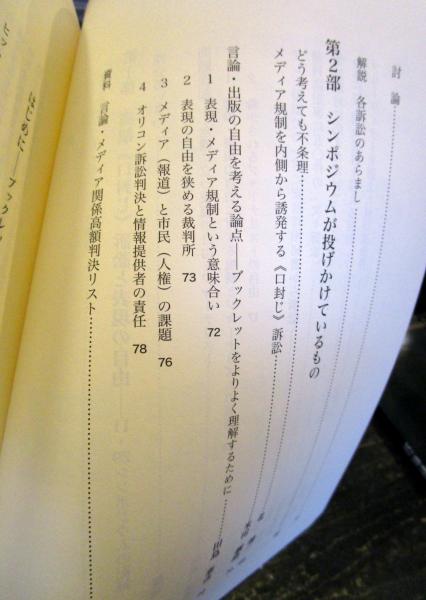 討論
解説 各訴訟のあらまし
第2部 シンポジウムが投げかけているもの
どう考えても不条理
メディア規制を内側から誘発する《口封じ》訴訟
言論・出版の自由を考える論点——ブックレットをよりよく理解するために
1 表現・メディア規制という意味合い 72
2 表現の自由を狭める裁判所 73
3 メディア（報道）と市民（人権）の課題 76
4 オリコン訴訟判決と情報提供者の責任 78
資料 言論・メディア関係高額判決リスト
はじめに